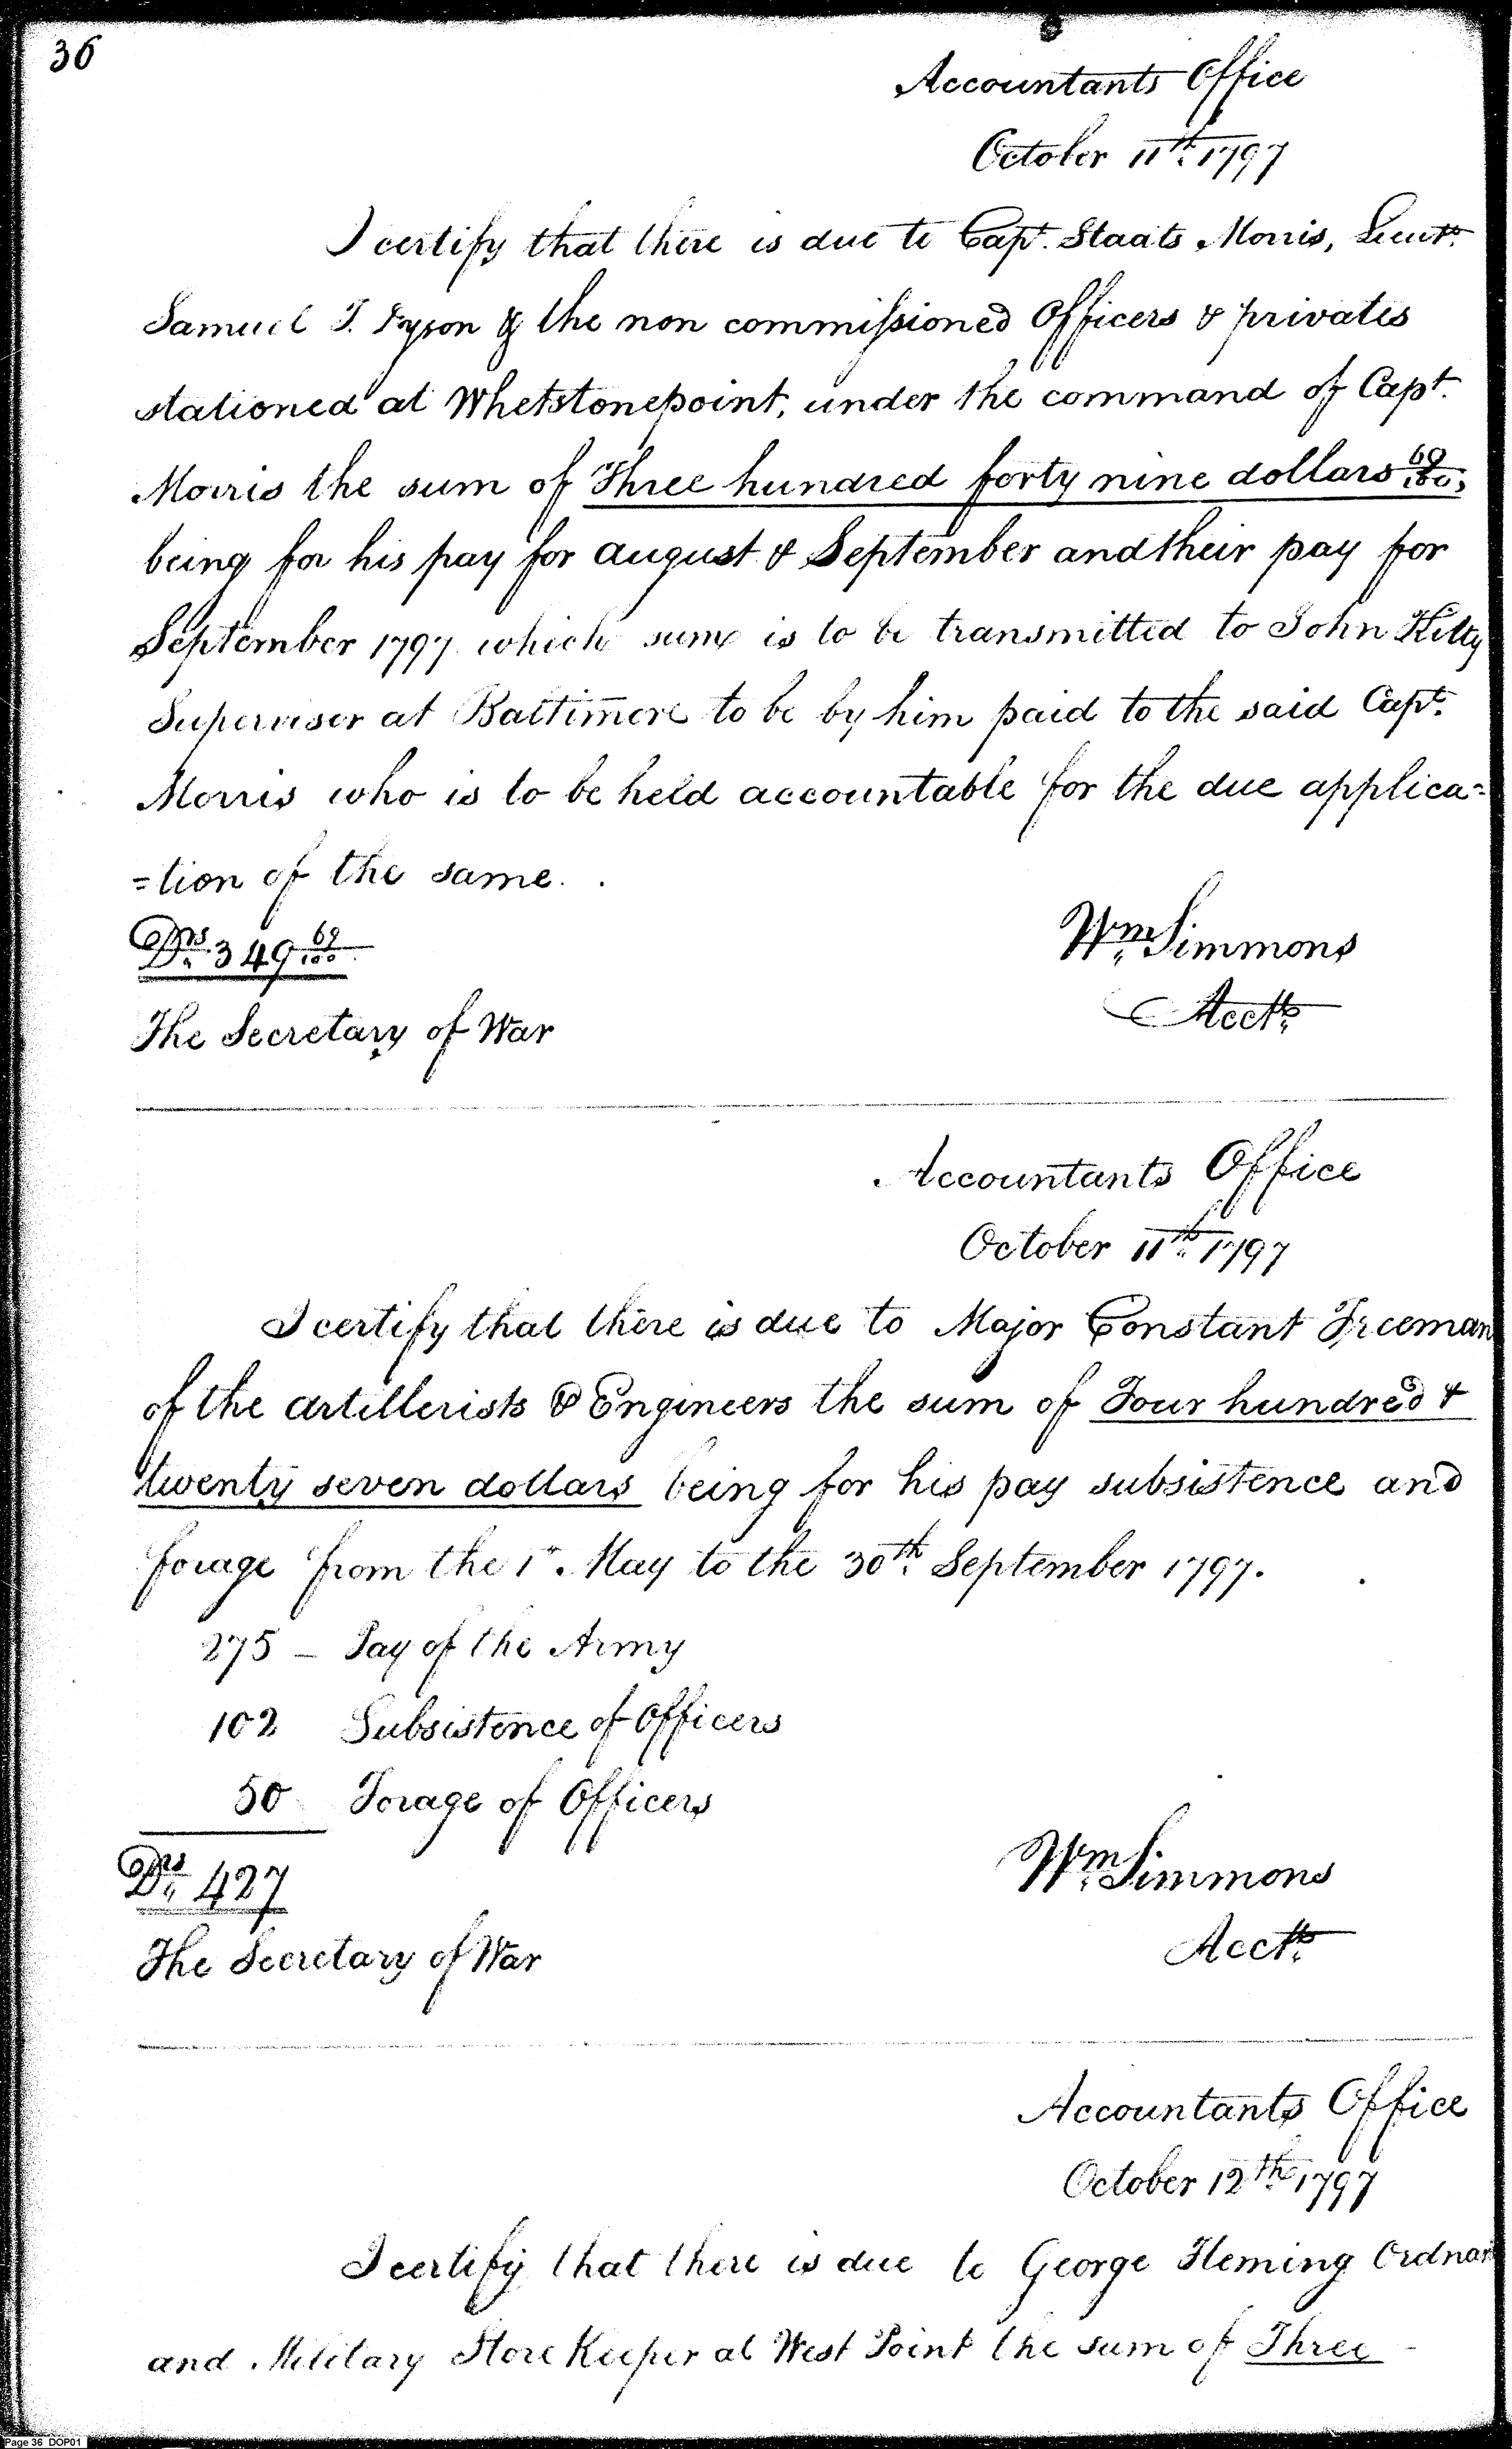 36
Accountants Office
October 11th. 1797
I certify that there is due to Capt. Staats Morris, Lieut.
Samuel T. Dyson & the non commissioned Officers & privates
stationed at Whetstonepoint, under the command of Capt.
Morris the sum of Three hundred forty nine dollars 69/100,
being for his pay for august & September and their pay for
September 1797 which sum is to be transmitted to John Kilty
Supervisor at Baltimore to be by him paid to the said Capt.
Morris who is to be held accountable for the due applica=
=tion of the same.
Drs. 349 69/100
Wm. Simmons
Acctt.
The Secretary of War
Accountants Office
October 11th. 1797
I certify that there is due to Major Constant Freeman
of the artillerists & Engineers the sum of Four hundred &
twenty seven dollars being for his pay subsistence and
forage from the 1st. May to the 30th. September 1797.
275 – Pay of the Army
102 Subsistence of Officers
50 Forage of Officers
Drs. 427
Wm. Simmons
Acctt.
The Secretary of War
Accountants Office
October 12th. 1797
I certify that there is due to George Fleming Ordnan
and Military Store Keeper at West Point the sum of Three
Page 36 DOP01